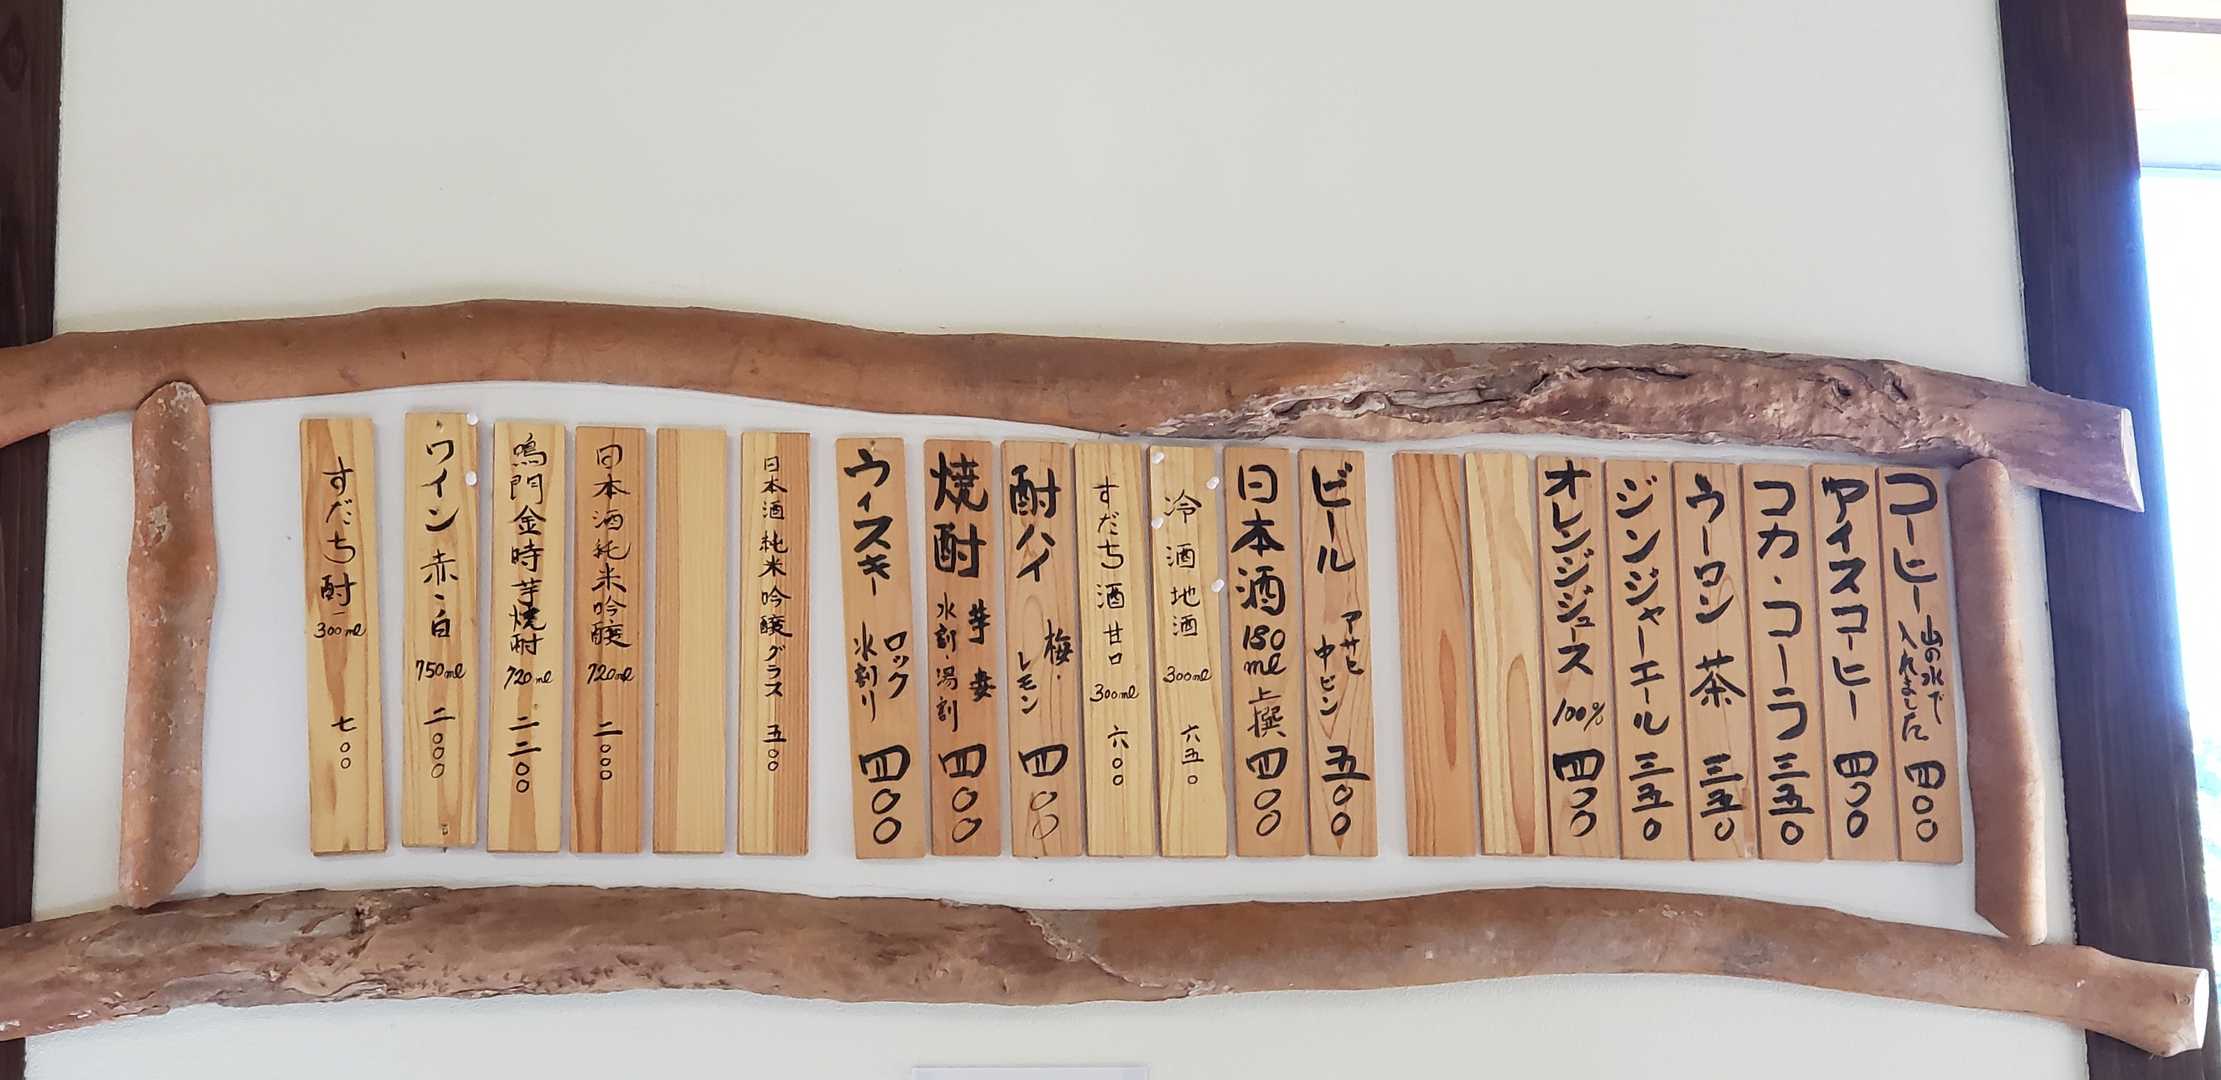 コーヒー 山の水で
入れました 四〇〇
アイスコーヒー 四〇〇
コカ・コーラ 三五〇
ウーロン茶 三五〇
ジンジャーエール 三五〇
オレンジジュース 100% 四〇〇
ビール アサヒ
中ビン 五〇〇
日本酒 180ml 上撰 四〇〇
冷酒 地酒 300ml 六五〇
すだち酒 甘口 300ml 六〇〇
酎ハイ 梅・
レモン 四〇〇
焼酎 芋 麦
水割・湯割 四〇〇
ウィスキー ロック
水割り 四〇〇
日本酒 純米吟醸 グラス 五〇〇
日本酒純米吟醸 720ml 二〇〇〇
鳴門金時芋焼酎 720ml 二二〇〇
ワイン 赤・白 750ml 二〇〇〇
すだち酎 300ml 七〇〇